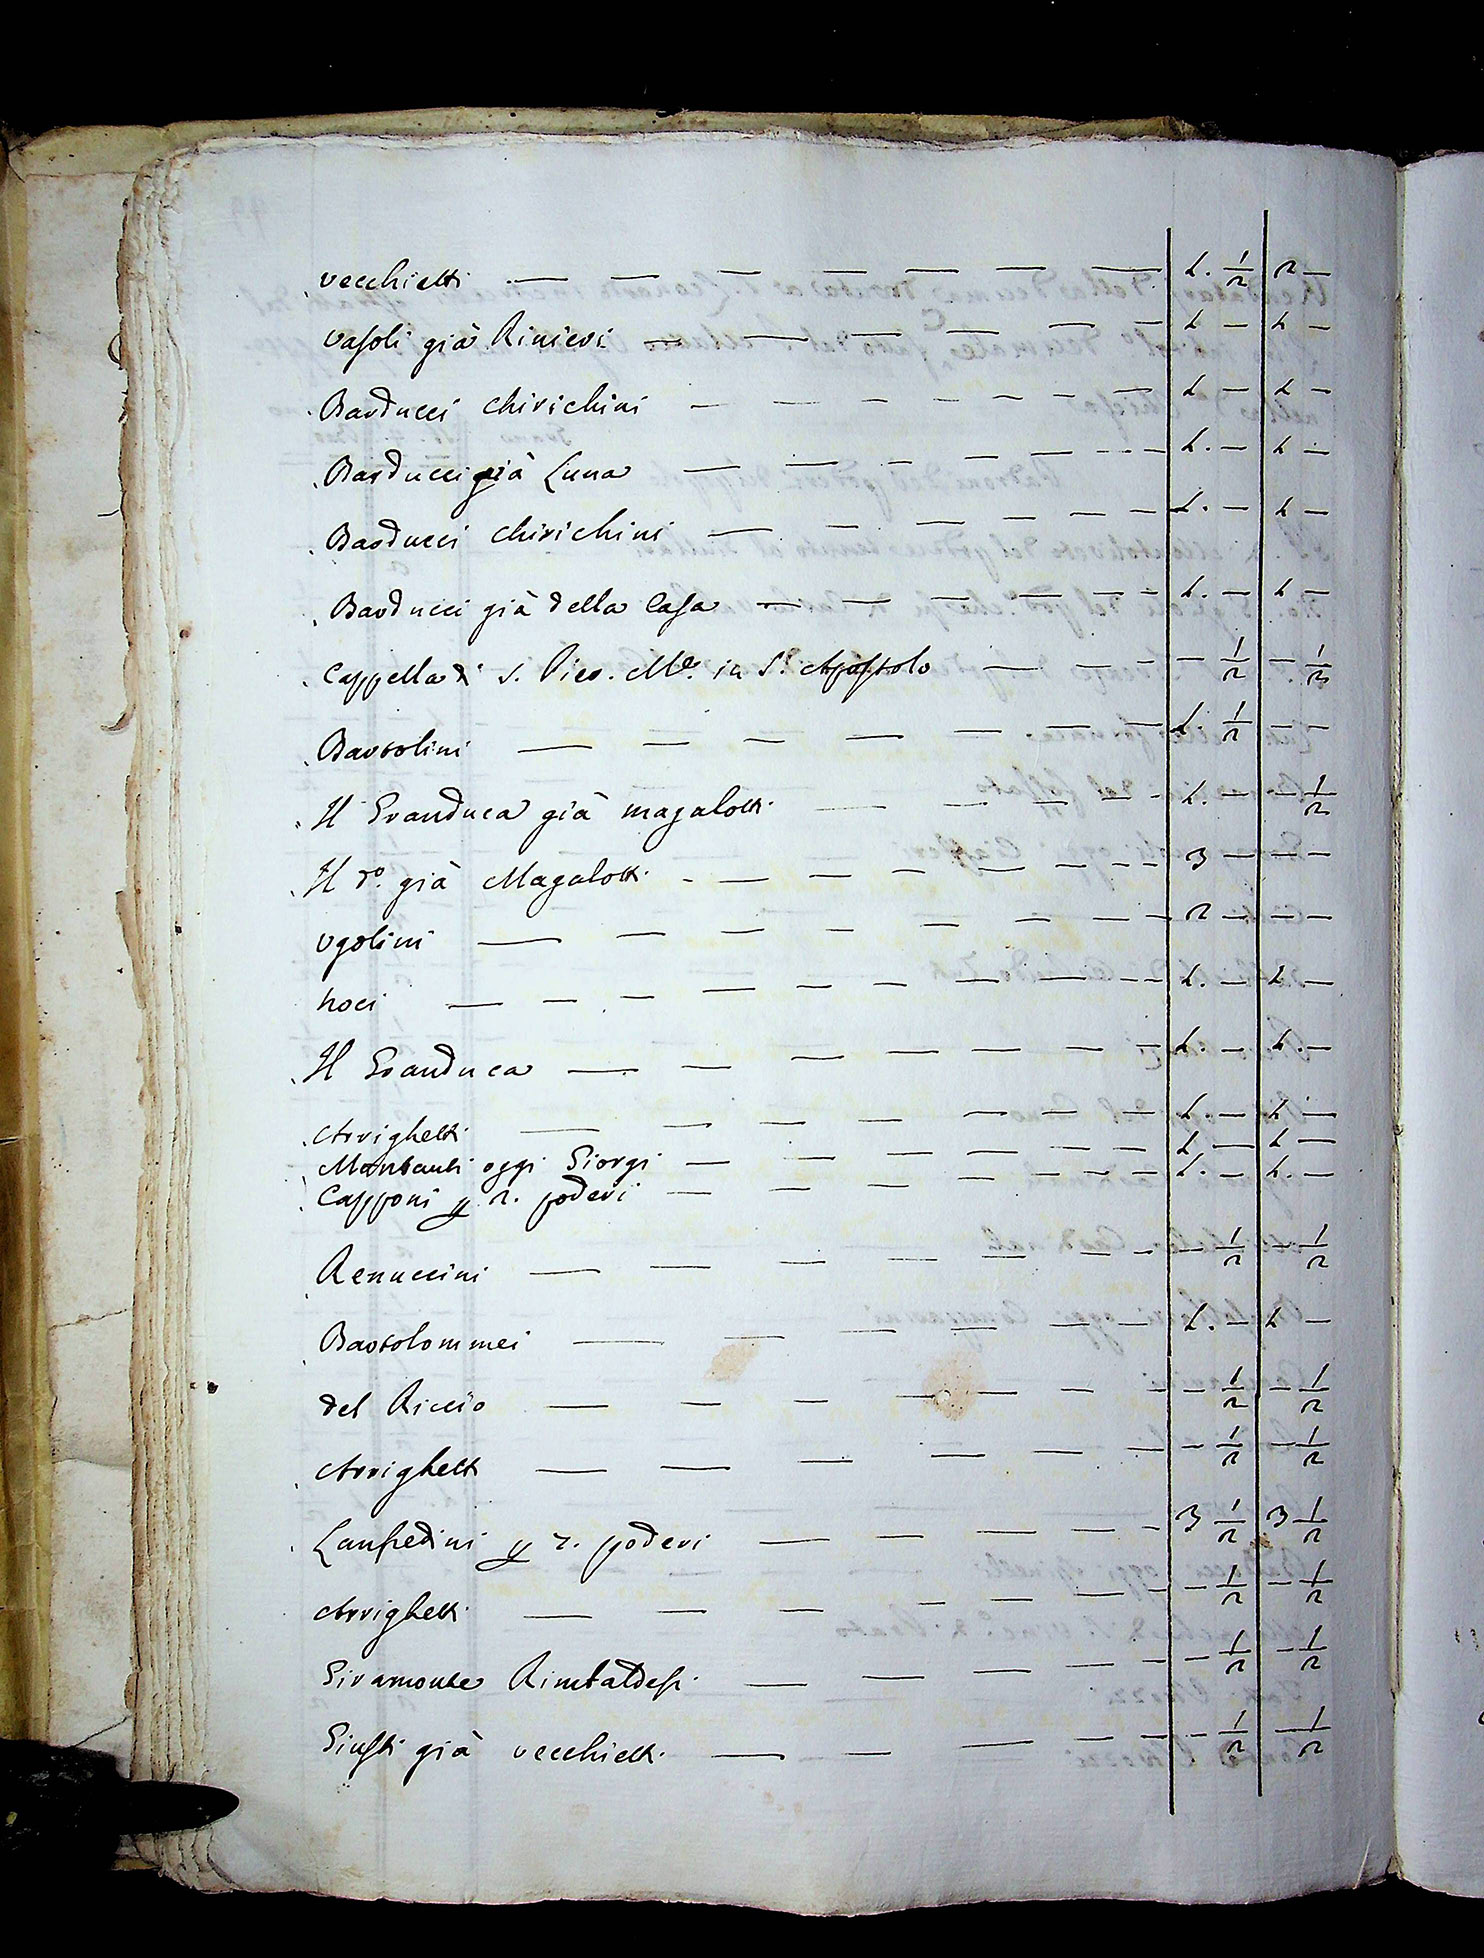 Vecchietti — — — — — — — — 1. ½ 2 —
Vasoli già Rinieri — — — — — — 1 — 1 —
Barducci Chirichini — — — — — — — — 1 — 1 —
Barducci già Luna — — — — — — — 1. — 1 —
Barducci Chirichini — — — — — — — 1. — 1 —
Barducci già della Casa — — — — — — — 1. — 1 —
Cappella di S. Pier. Me. in S.to Apostolo — — — — — ½ — ½
Bartolini — — — — — — — — 1. ½ — —
Il Granduca già Magalotti — — — — — 1. — — ½
Il do. già Magalotti — — — — — — — 3 — — —
Ugolini — — — — — — — — 2 — — —
Noci — — — — — — — — — 1. — 1. —
Il Granduca — — — — — — — 1. — 1. —
Arrighetti — — — — — — — 1. — 1. —
Montauti oggi Giorgi — — — — — — 1. — 1 —
Capponi p 2. poderi — — — — — — — 1. — 1. —
Renuccini — — — — — — — — ½ — ½
Bartolommei — — — — — — — 1. — 1 —
del Riccio — — — — — — — — ½ — ½
Arrighetti — — — — — — — — ½ — ½
Lanfredini p 2. poderi — — — — — — 3 ½ 3 ½
Arrighetti — — — — — — — — — ½ — ½
Giramonte Rimbaldesi — — — — — — ½ — ½
Giusti già Vecchietti — — — — — — — ½ — ½